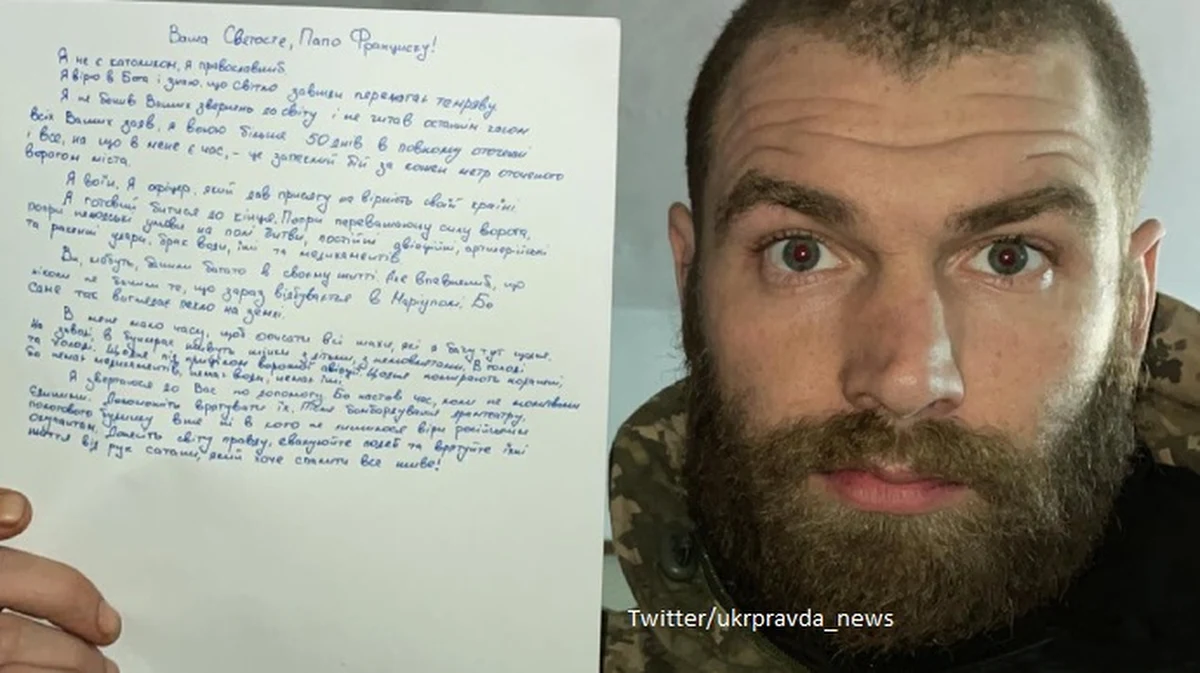 Ваша Святосте, Папо Франциску!
Я не є католиком, я православний.
Я вірю в Бога і знаю, що світло завжди перемагає темряву.
Я не бачив Ваших звернень до світу і не читав останнім часом
всіх Ваших заяв, я воюю більше 50 днів в повному оточенні
і все, на що в мене є час, – це запеклий бій за кожен метр оточеного
ворогом міста.
Я воїн. Я офіцер, який дав присягу на вірність своїй країні.
Я готовий битися до кінця. Попри переважаючу силу ворога,
попри нелюдські умови на полі битви, постійні авіаційні, артилерійські
та ракетні удари, брак води, їжі та медикаментів.
Ви, мабуть, бачили багато в своєму житті. Але впевнений, що
ніколи не бачили те, що зараз відбувається в Маріуполі. Бо
саме так виглядає пекло на землі.
В мене мало часу, щоб описати всі жахи, які я бачу тут щодня.
На заводі в бункерах живуть жінки з дітьми, з немовлятами. В голоді
та холоді. Щодня під прицілом ворожої авіації. Щодня помирають поранені,
бо немає медикаментів, немає води, немає їжі.
Я звертаюся до Вас по допомогу. Бо настав час, коли не молитвами
єдиними. Допоможіть врятувати їх. Після бомбардування драмтеатру,
пологового будинку вже ні в кого не лишилося віри російським
окупантам. Донесіть світу правду, евакуюйте людей та врятуйте їхні
життя від рук сатани, який хоче спалити все живе!
Twitter/ukrpravda_news